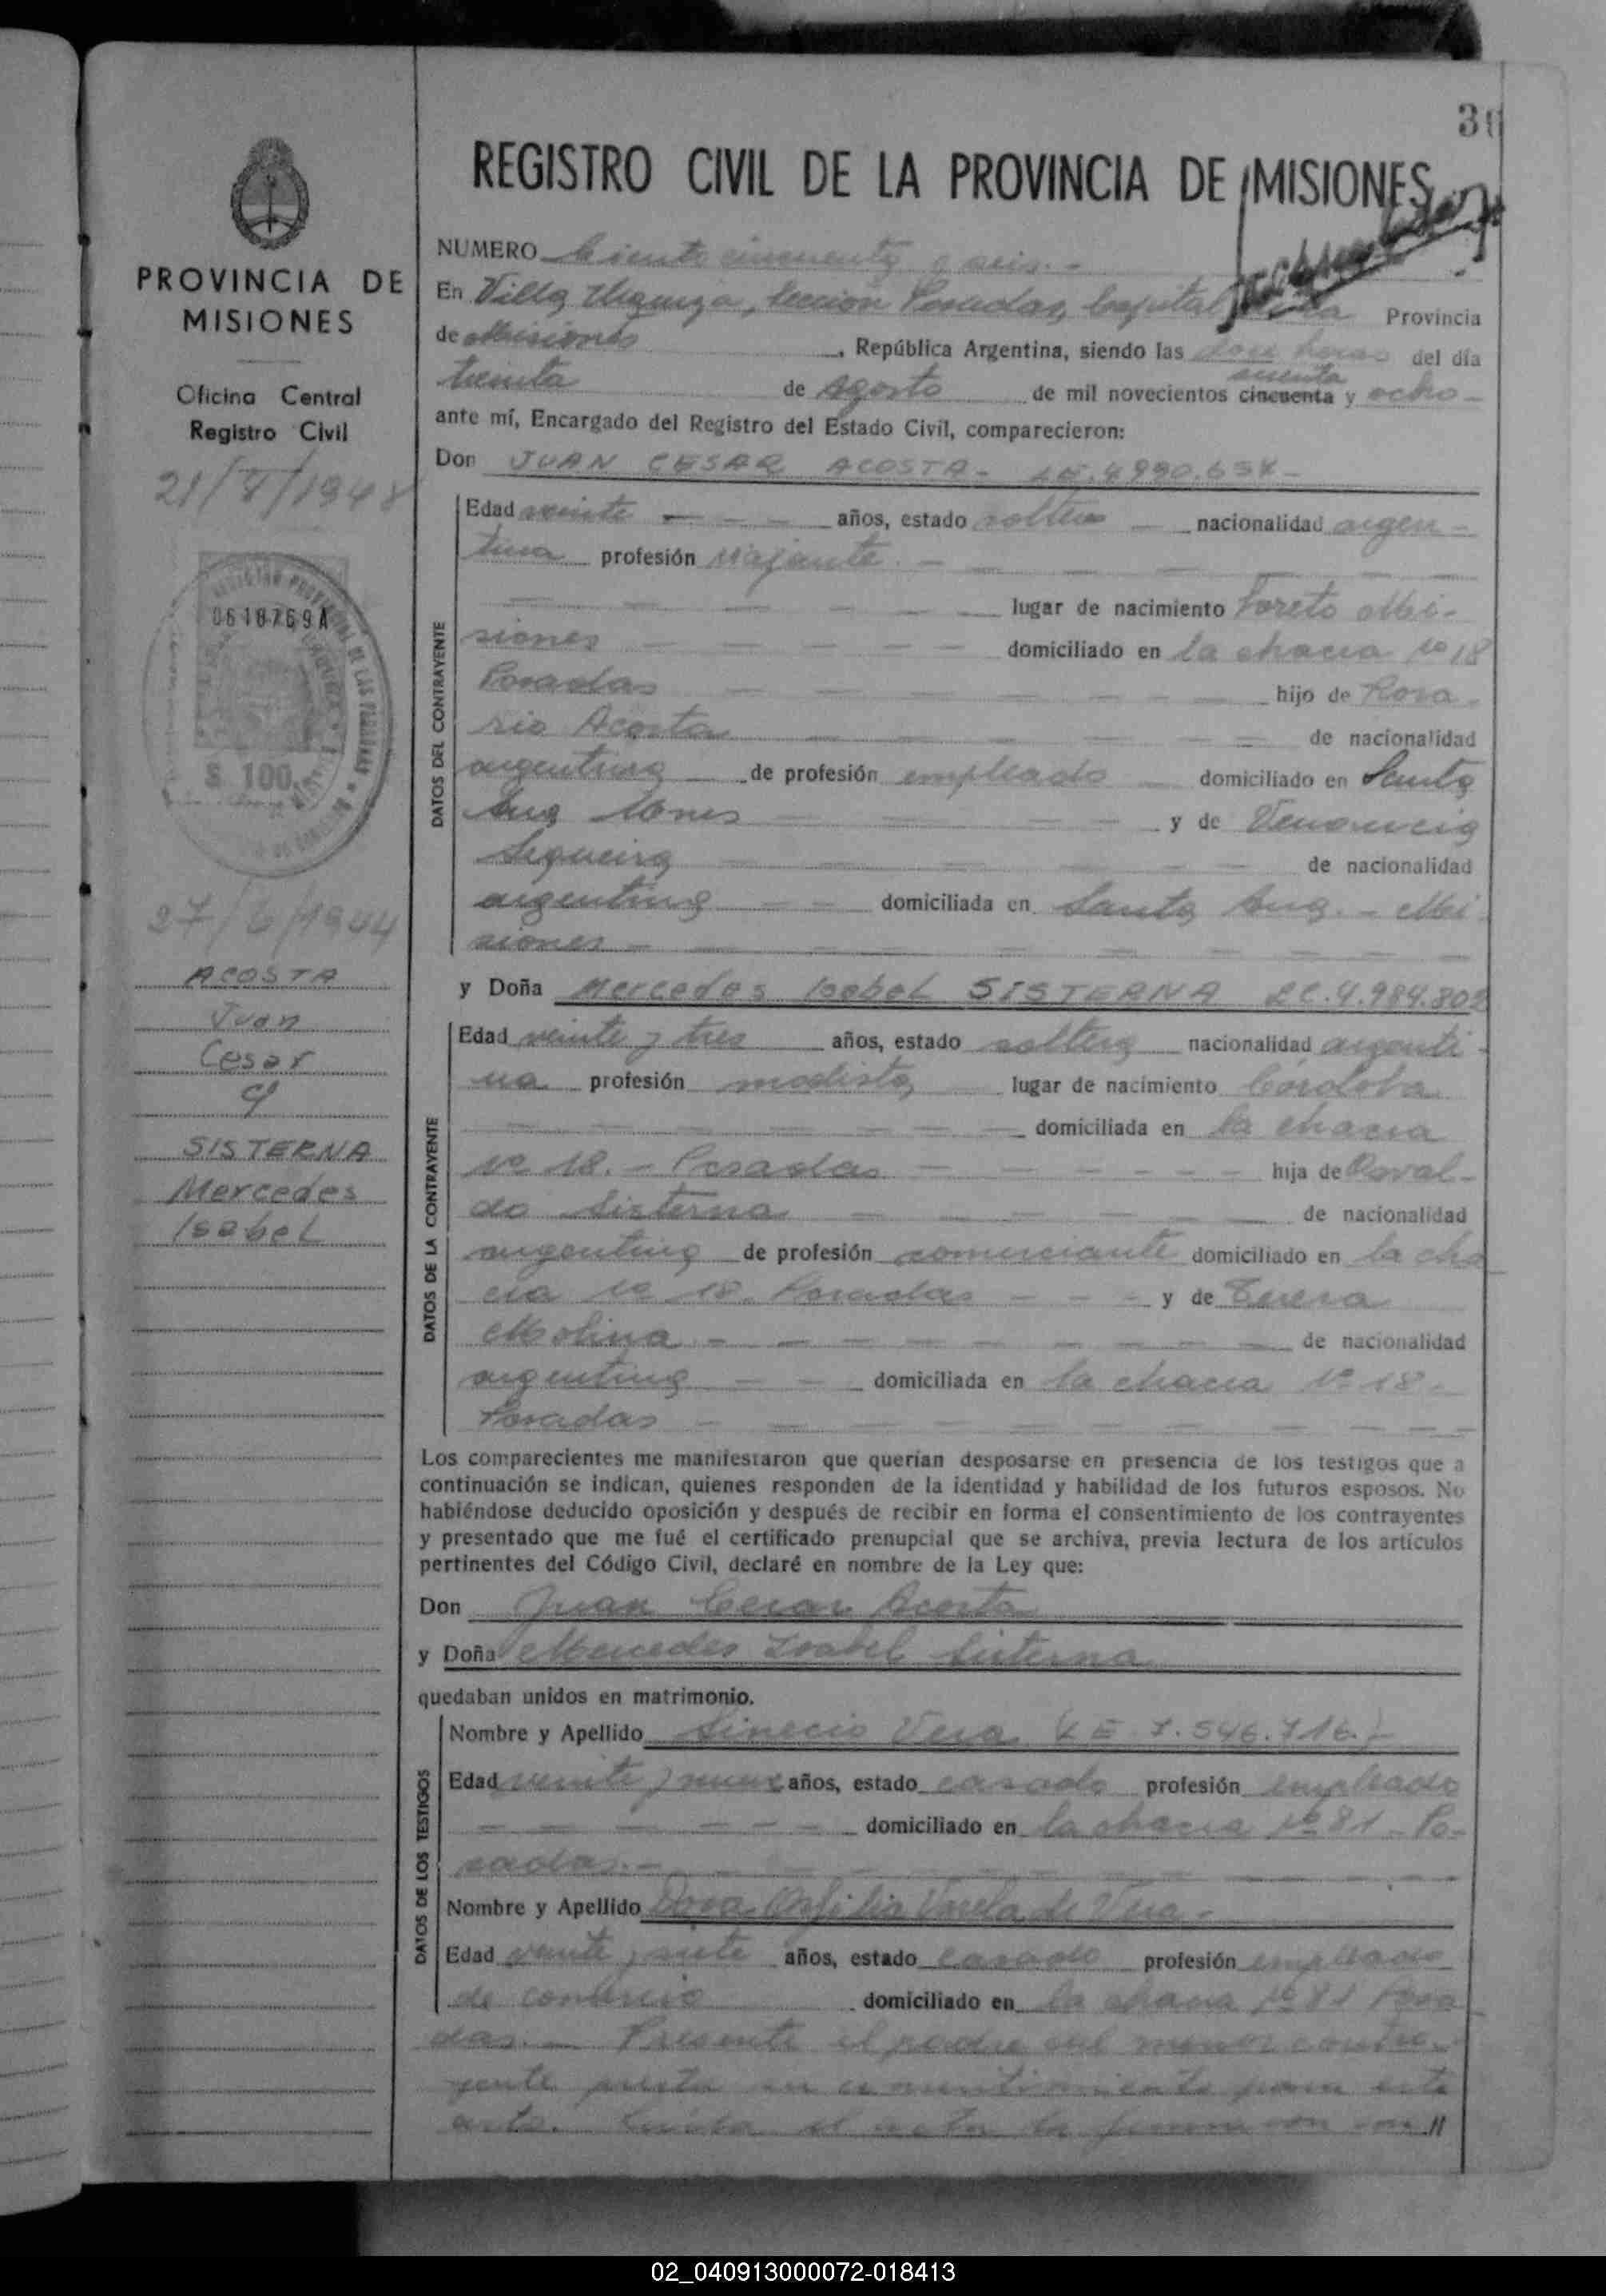 30
REGISTRO CIVIL DE LA PROVINCIA DE MISIONES
PROVINCIA DE
MISIONES
Oficina Central
Registro Civil
21/7/1948
0618769A
$ 100
27/6/1944
ACOSTA
Juan
Cesar
y
SISTERNA
Mercedes
Isabel
NUMERO Ciento cincuenta y seis.-
En Villa Urquiza, Sección Posadas, Capital Provincia
de Misiones , República Argentina, siendo las doce horas del día
sesenta
treinta de Agosto de mil novecientos cincuenta y ocho-
ante mí, Encargado del Registro del Estado Civil, comparecieron:
Don JUAN CESAR ACOSTA- LE.4.990.
DATOS DEL CONTRAYENTE
Edad veinte - - - años, estado soltero - nacionalidad argen-
tina profesión viajante. -
lugar de nacimiento Loreto Mi-
siones domiciliado en la chacra Nº 18
Posadas hijo de Rosa-
rio Acosta de nacionalidad
argentina de profesión empleado - domiciliado en Santa
Ana Mnes y de Venancia
Sequeira de nacionalidad
argentina domiciliada en Santa Ana. - Mi-
siones -
y Doña Mercedes Isabel SISTERNA LC.4.984.802
DATOS DE LA CONTRAYENTE
Edad veinte y tres años, estado soltera nacionalidad argenti-
na profesión modista, lugar de nacimiento Córdoba
domiciliada en la chacra
Nº 18. - Posadas hija de Rosval-
do Sisterna de nacionalidad
argentina de profesión comerciante domiciliado en la cha
cra Nº 18. Posadas - - - y de Teresa
Molina - de nacionalidad
argentina - - domiciliada en la chacra Nº 18-
Posadas -
Los comparecientes me manifestaron que querían desposarse en presencia de los testigos que a
continuación se indican, quienes responden de la identidad y habilidad de los futuros esposos. No
habiéndose deducido oposición y después de recibir en forma el consentimiento de los contrayentes
y presentado que me fué el certificado prenupcial que se archiva, previa lectura de los artículos
pertinentes del Código Civil, declaré en nombre de la Ley que:
Don Juan Cesar Acosta
y Doña Mercedes Isabel Sisterna
quedaban unidos en matrimonio.
DATOS DE LOS TESTIGOS
Nombre y Apellido Sinecio Vera (LE 7.546.716.)-
Edad veinte y nueve años, estado casado profesión empleado
domiciliado en la chacra Nº 81 - Po-
sadas.-
Nombre y Apellido Dora Varela de Vera -
Edad veinte y siete años, estado casado profesión empleado
de comercio domiciliado en la chacra Nº 81 Posa
das. - Presente el padre del menor contra-
yente presta su consentimiento para este
acto. Leída el acta la firman con con//
02_040913000072-018413